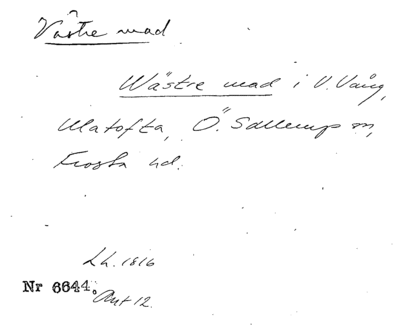 Västre mad
Wästre mad i V. Vång,
Matofta, Ö. Sallerup sn,
Frosta hd.
Lh. 1816
Nr 6644.
Akt 12.